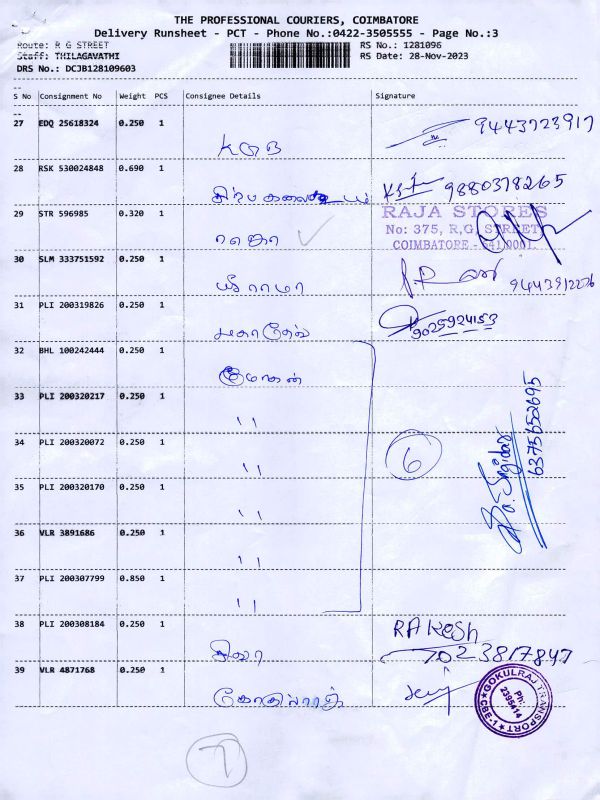 THE PROFESSIONAL COURIERS, COIMBATORE
Delivery Runsheet - PCT - Phone No.:0422-3505555 - Page No.:3
Route: R G STREET
Staff: THILAGAVATHI
DRS No.: DCJB128109603
RS No.: 1281096
RS Date: 28-Nov-2023
S No Consignment No Weight PCS Consignee Details Signature
27 EDQ 25618324 0.250 1
9443723917
KGB
28 RSK 530024848 0.690 1
9880378265
29 STR 596985 0.320 1
RAJA STORES
No: 375, R.G. STREET
COIMBATORE - 641 0001.
ராஜா
30 SLM 333751592 0.250 1
9443912226
ஸ்ரீ ராமா
31 PLI 200319826 0.250 1
9025924153
மகாதேவ்
32 BHL 100242444 0.250 1
மோகன்
33 PLI 200320217 0.250 1
''
34 PLI 200320072 0.250 1
''
6
6375652695
35 PLI 200320170 0.250 1
''
36 VLR 3891686 0.250 1
''
37 PLI 200307799 0.850 1
''
38 PLI 200308184 0.250 1
RAKESH
7023817847
39 VLR 4871768 0.250 1
GOKULRAJ TRANSPORT
Ph: 2395414
CBE-1
7